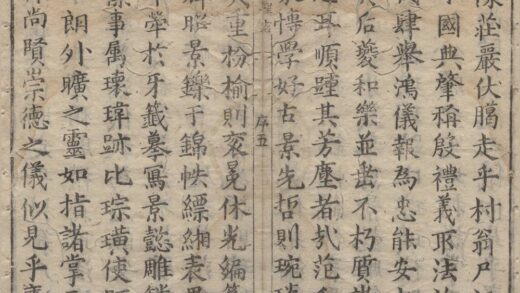 莊嚴伏臘走乎村翁戶
國典肇稱殷禮義取法
肆舉鴻儀報為忠能安
后夔和樂並垂不朽
之耳順踵其芳塵者
博學好古景先哲則琬
序五
重枌榆則衮冕休光編
昭景鑠于錦帙縹緗表
牽於牙籤摹寫景懿雕
事属瓌瑋跡比琮璜使
朗外曠之靈如指諸掌
尚賢崇德之儀似見乎